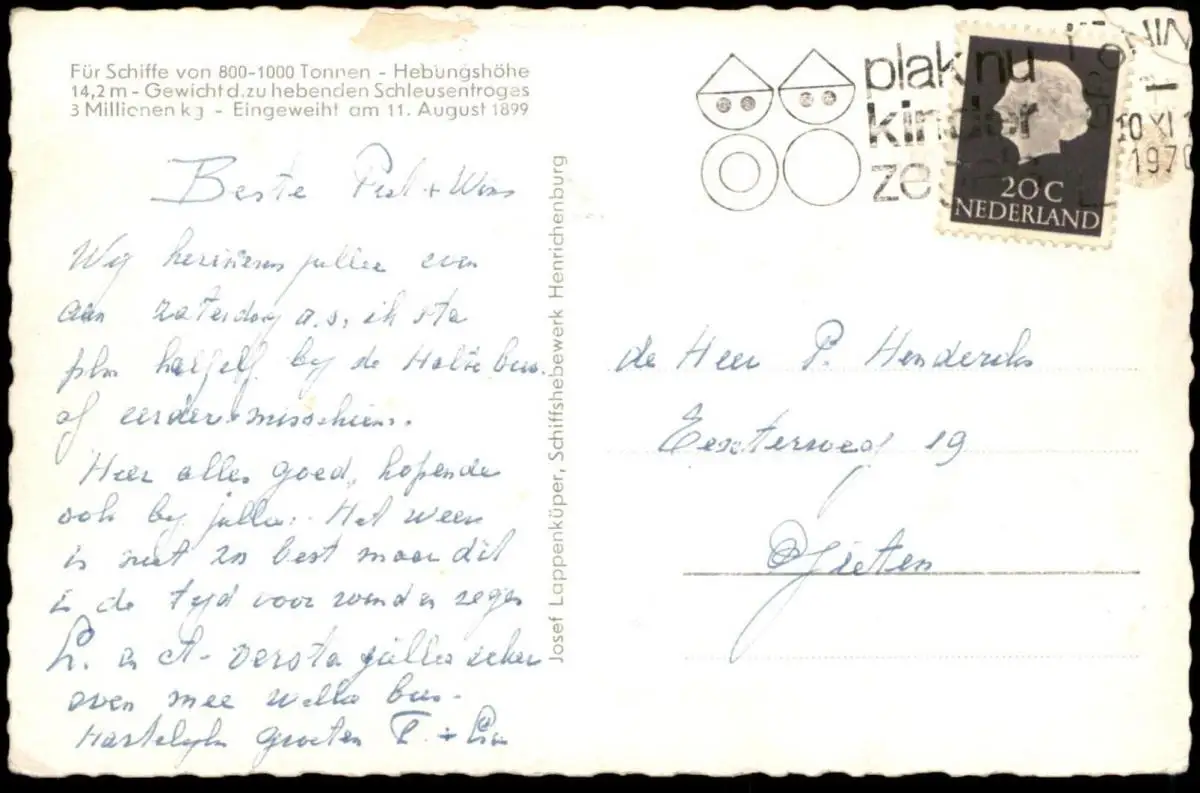 Für Schiffe von 800-1000 Tonnen - Hebungshöhe
14,2 m - Gewicht d. zu hebenden Schleusentroges
3 Millionen kg - Eingeweiht am 11. August 1899
Beste Piet + Wims
Wij herinneren jullie even
aan zaterdag a.s. ik sta
plm half by de Halte bus.
of eerder misschien.
Hier alles goed, hopende
ook by jullie. Het weer
is niet zo best maar dit
is de tyd voor wind en regen
en A-
even mee welke bus.
Hartelyke groeten
Josef Lappenküper, Schiffshebewerk Henrichenburg
plak nu
kinder
ze
10 XI
1970
20 C
NEDERLAND
de Heer P. Henderiks
Eexterweg 19
Gieten